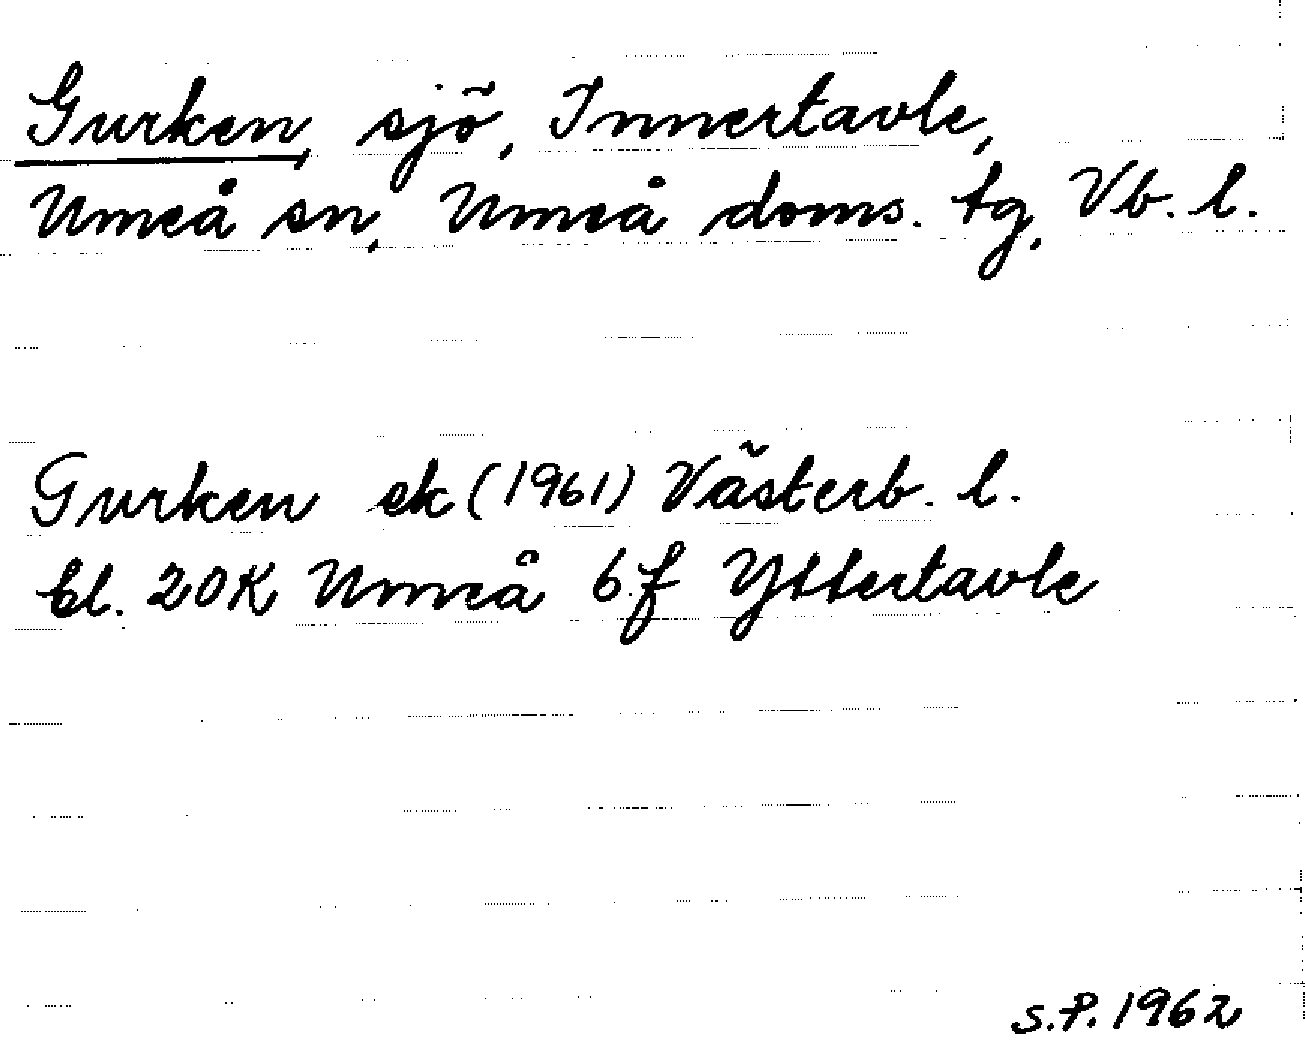 Gurken, sjö, Innertavle,
Umeå sn, Umeå doms. tg, Vb. l.
Gurken ek (1961) Västerb. l.
bl. 20K Umeå 6 f Yttertavle
S.P. 1962